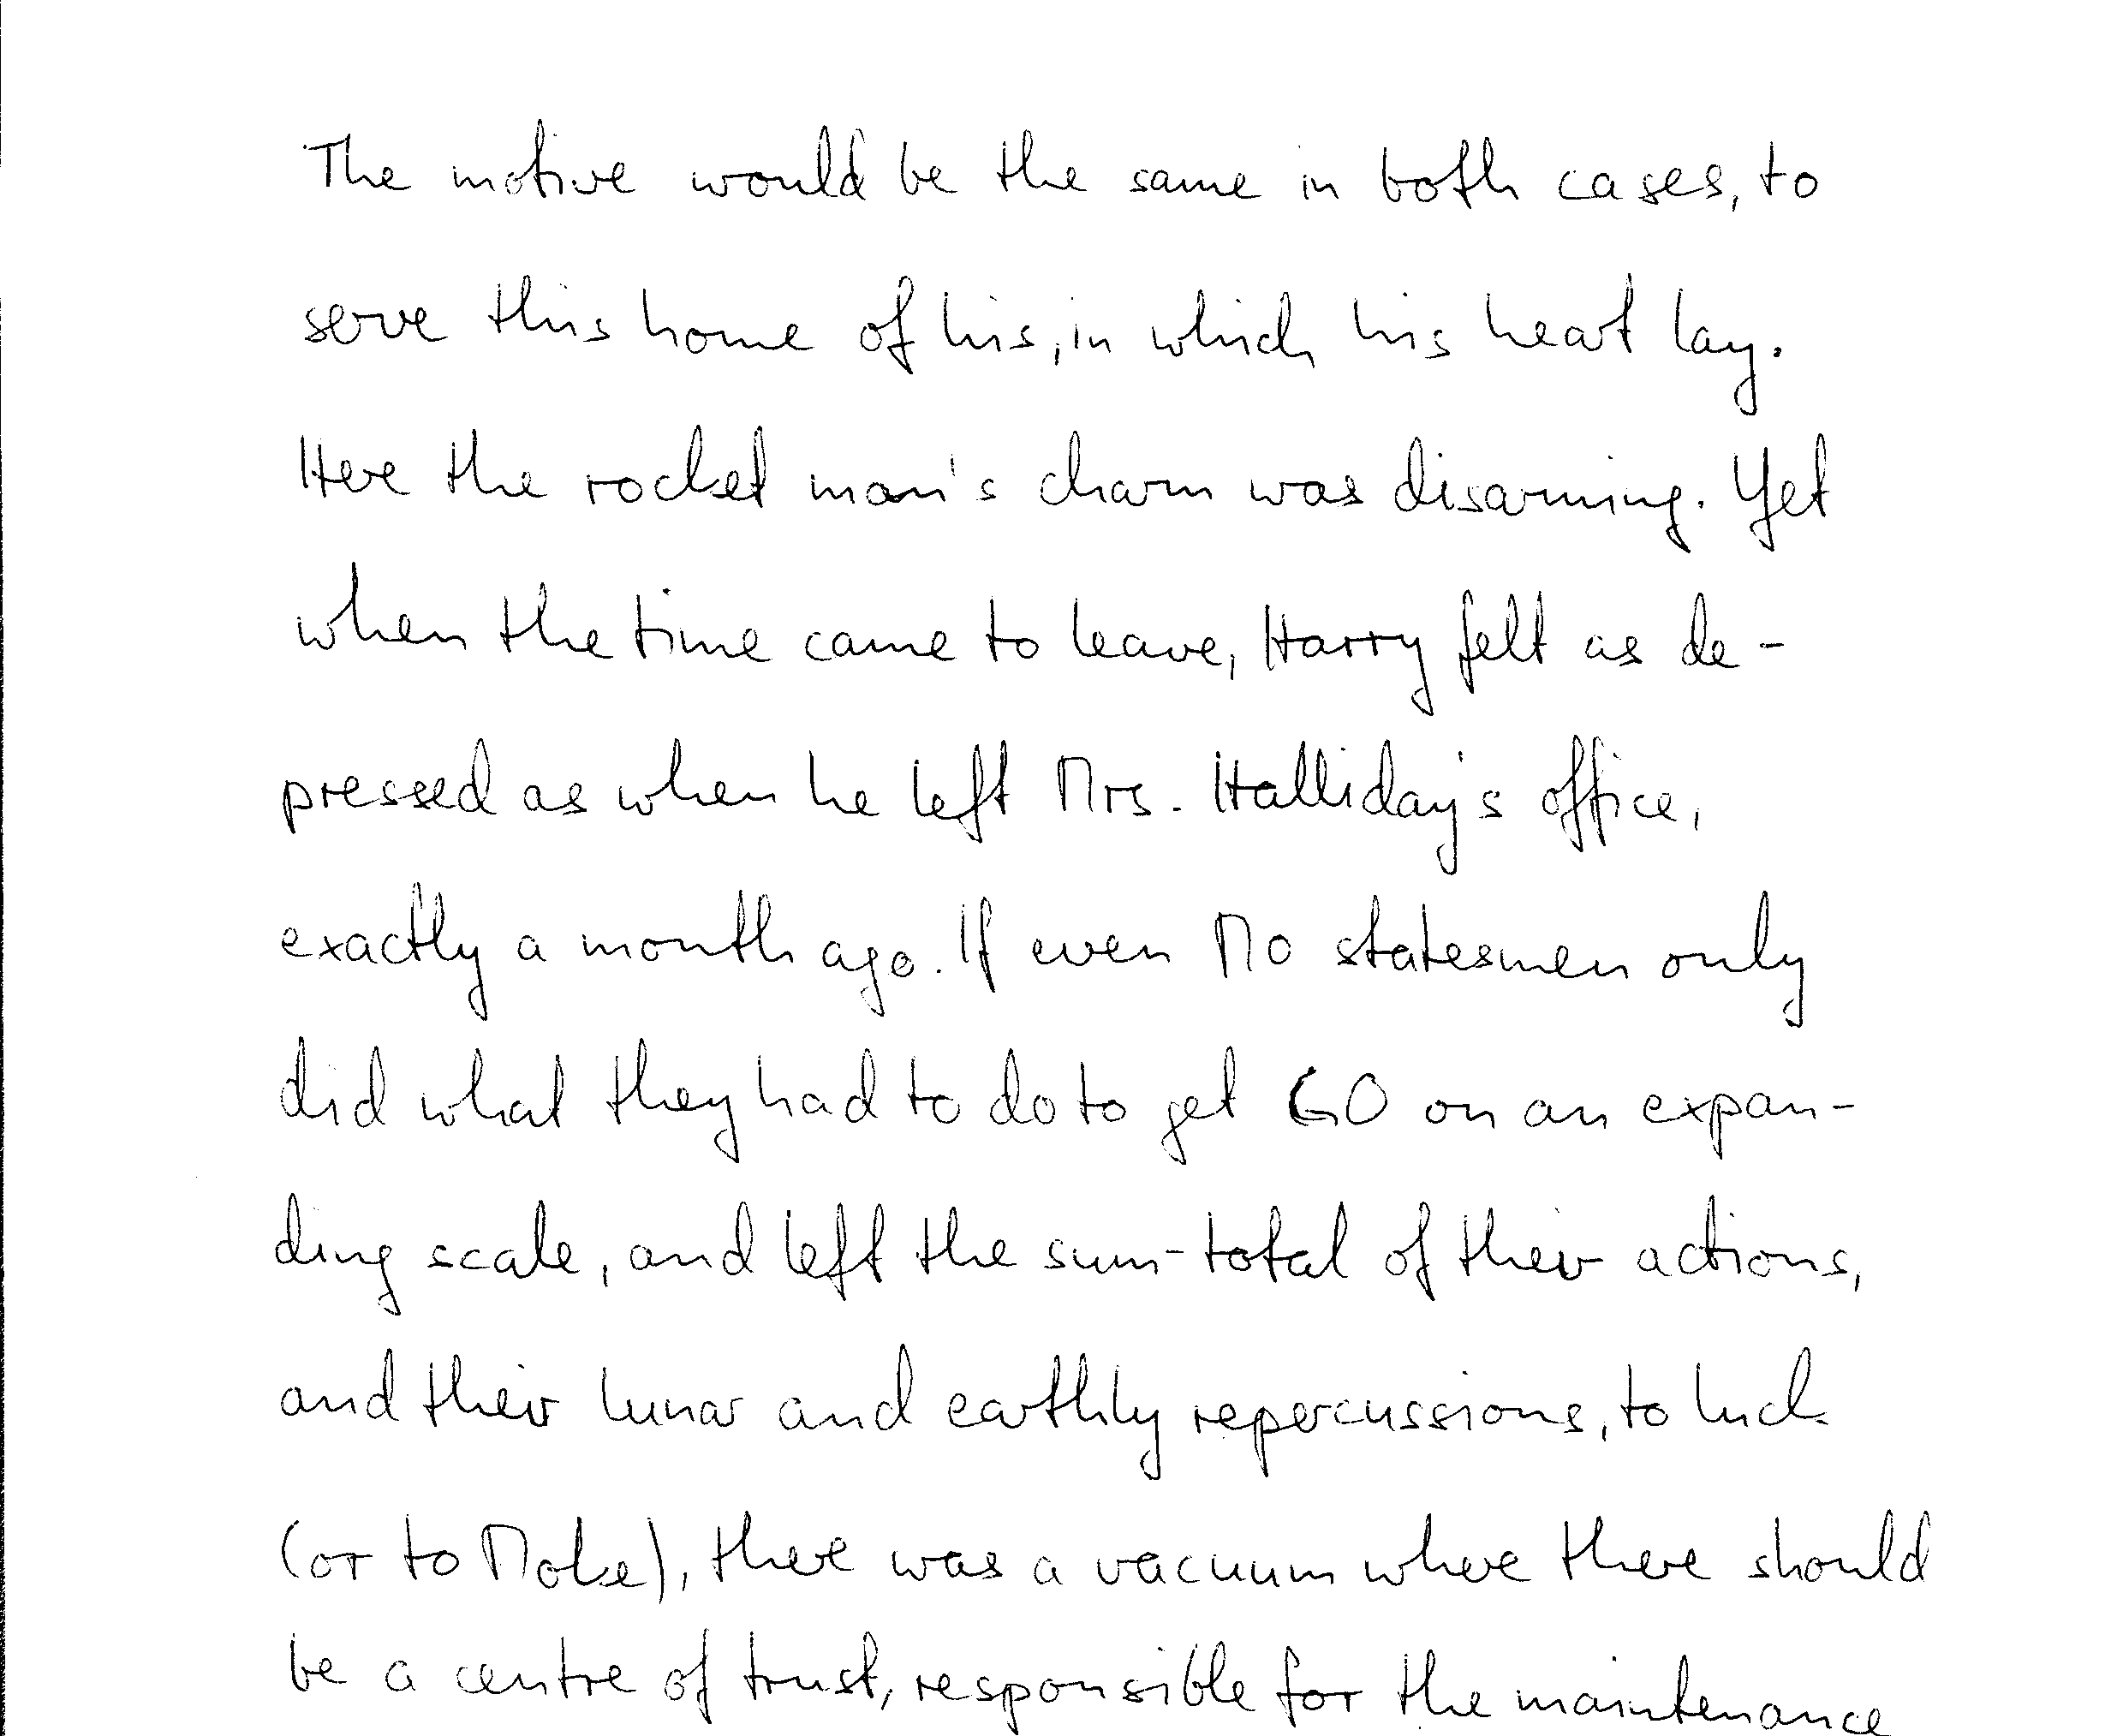 The motive would be the same in both cases, to
serve this home of his, in which his heart lay.
Here the rocket man's charm was disarming. Yet
when the time came to leave, Harry felt as de-
pressed as when he left Mrs. Halliday's office,
exactly a month ago. If even MO statesmen only
did what they had to do to get GO on an expan-
ding scale, and left the sum-total of their actions,
and their lunar and earthly repercussions, to luck
(or to Moke), there was a vacuum where there should
be a centre of trust, responsible for the maintenance